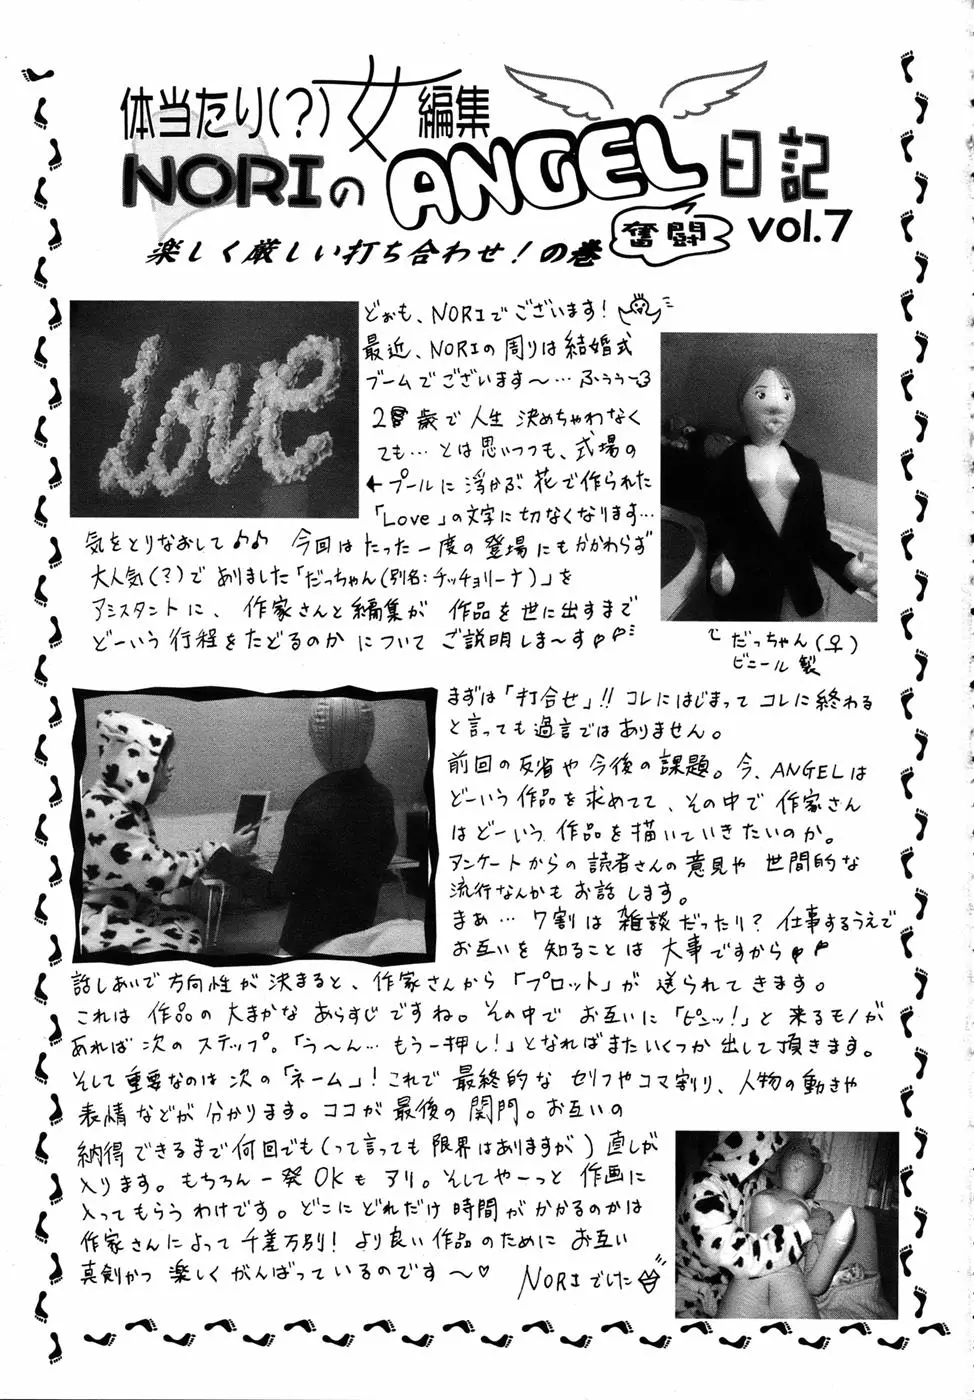 体当たり(?)女編集
NORIのANGEL日記
奮闘 vol.7
楽しく厳しい打ち合わせ!の巻
どぉも、NORIでございます!
最近、NORIの周りは結婚式
ブームでございます〜…ふぅぅ〜
歳で人生 決めちゃわなく
ても…とは思いつつも、式場の
←プールに浮かぶ花で作られた
「Love」の文字に切なくなります…
気をとりなおして♪♪ 今回はたった一度の登場にもかかわらず
大人気(?)でありました「だっちゃん(別名:チッチョリーナ)」を
アシスタントに、作家さんと編集が 作品を世に出すまで
どーいう行程をたどるのかについてご説明しま〜す
だっちゃん(♀)
ビニール製
まずは「打合せ」!!コレにはじまってコレに終わる
と言っても過言ではありません。
前回の反省や今後の課題。今、ANGELは
どーいう作品を求めてて、その中で作家さん
はどーいう作品を描いていきたいのか。
アンケートからの読者さんの意見や 世間的な
流行なんかもお話します。
まぁ…7割は雑談だったり?仕事するうえで
お互いを知ることは大事ですから
話しあいで方向性が決まると、作家さんから「プロット」が送られてきます。
これは作品の大まかなあらすじですね。その中でお互いに「ピンッ!」と来るモノが
あれば次のステップ。「う〜ん…もう一押し!」となればまたいくつか出して頂きます。
そして重要なのは次の「ネーム」!これで最終的なセリフやコマ割り、人物の動きや
表情などが分かります。ココが最後の関門。お互いの
納得できるまで何回でも(って言っても限界はありますが)直しが
入ります。もちろん一発OKもアリ。そしてや〜っと作画に
入ってもらうわけです。どこにどれだけ時間がかかるのかは
作家さんによって千差万別!より良い作品のためにお互い
真剣かつ楽しくがんばっているのです〜♡
NORIでした